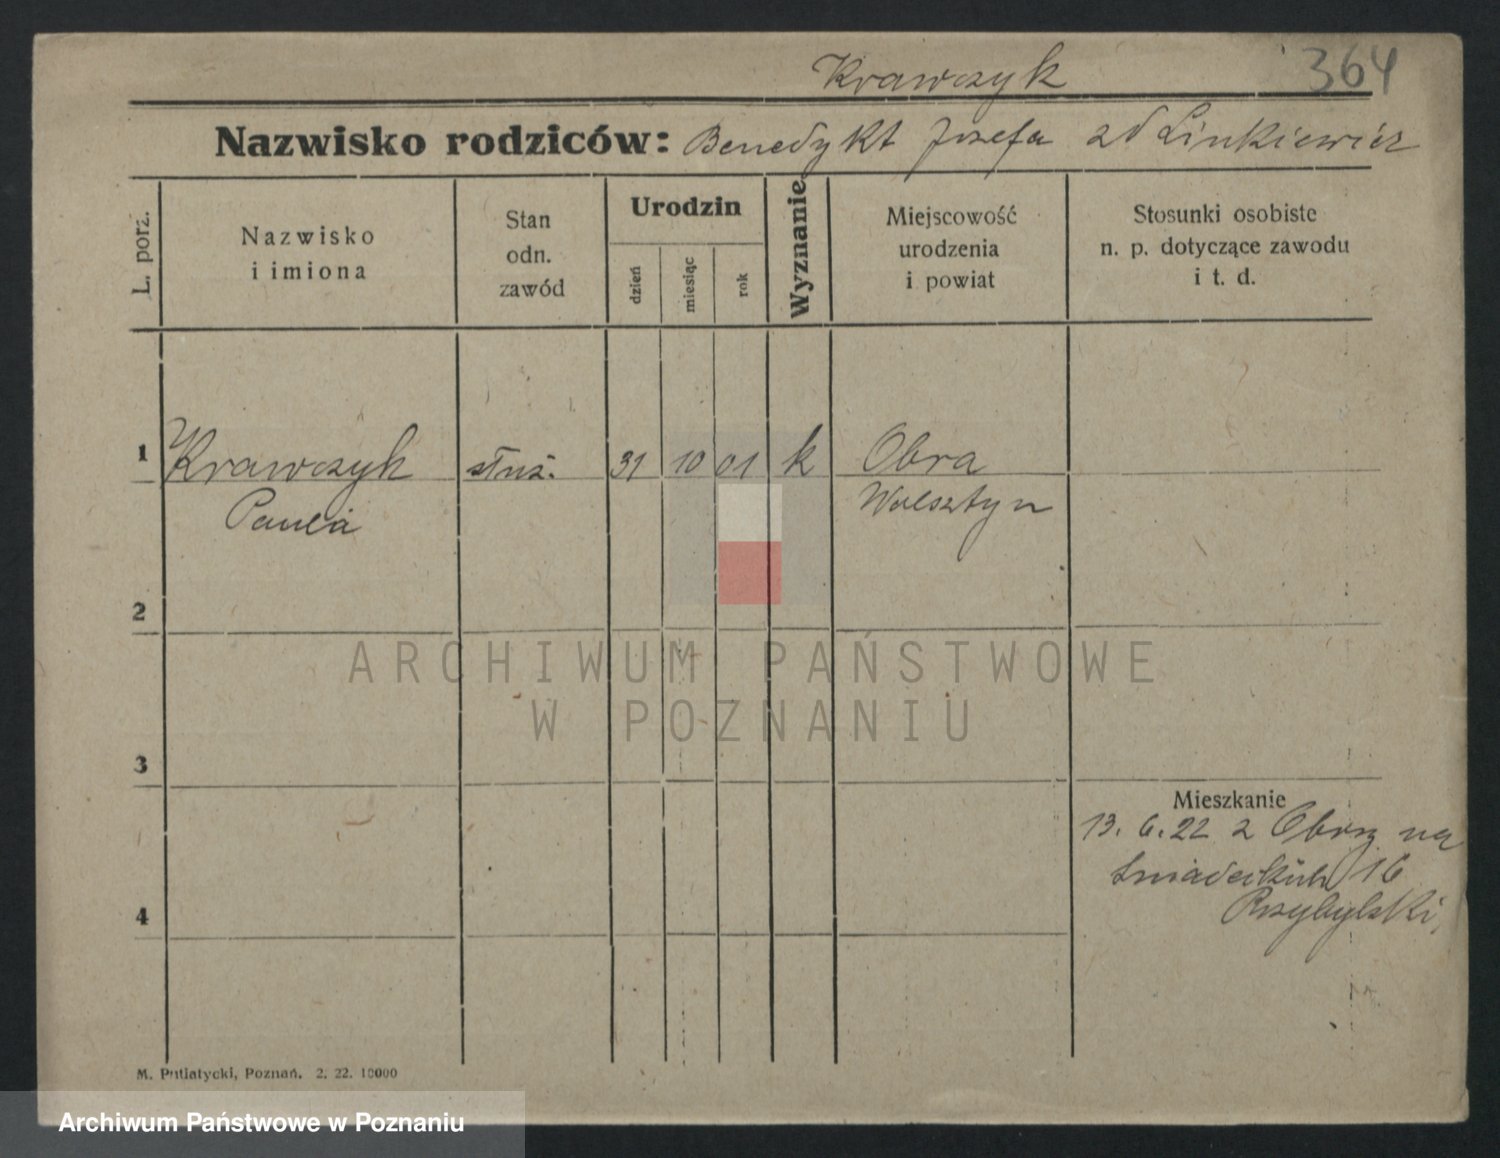 Krawczyk
364
Nazwisko rodziców: Benedykt Jozefa zd Linkiewicz
L. porz.
Nazwisko
i imiona
Stan
odn.
zawód
Urodzin
dzień
miesiąc
rok
Wyznanie
Miejscowość
urodzenia
i powiat
Stosunki osobiste
n. p. dotyczące zawodu
i t. d.
1 Krawczyk służ. 31 10 01 k Obra
Paula Wolsztyn
2
ARCHIWUM PAŃSTWOWE
W POZNANIU
3
Mieszkanie
13. 6. 22 z Obry na
Śniadeckich 16
Przybylski.
4
M. Putiatycki, Poznań. 2. 22. 10000
Archiwum Państwowe w Poznaniu